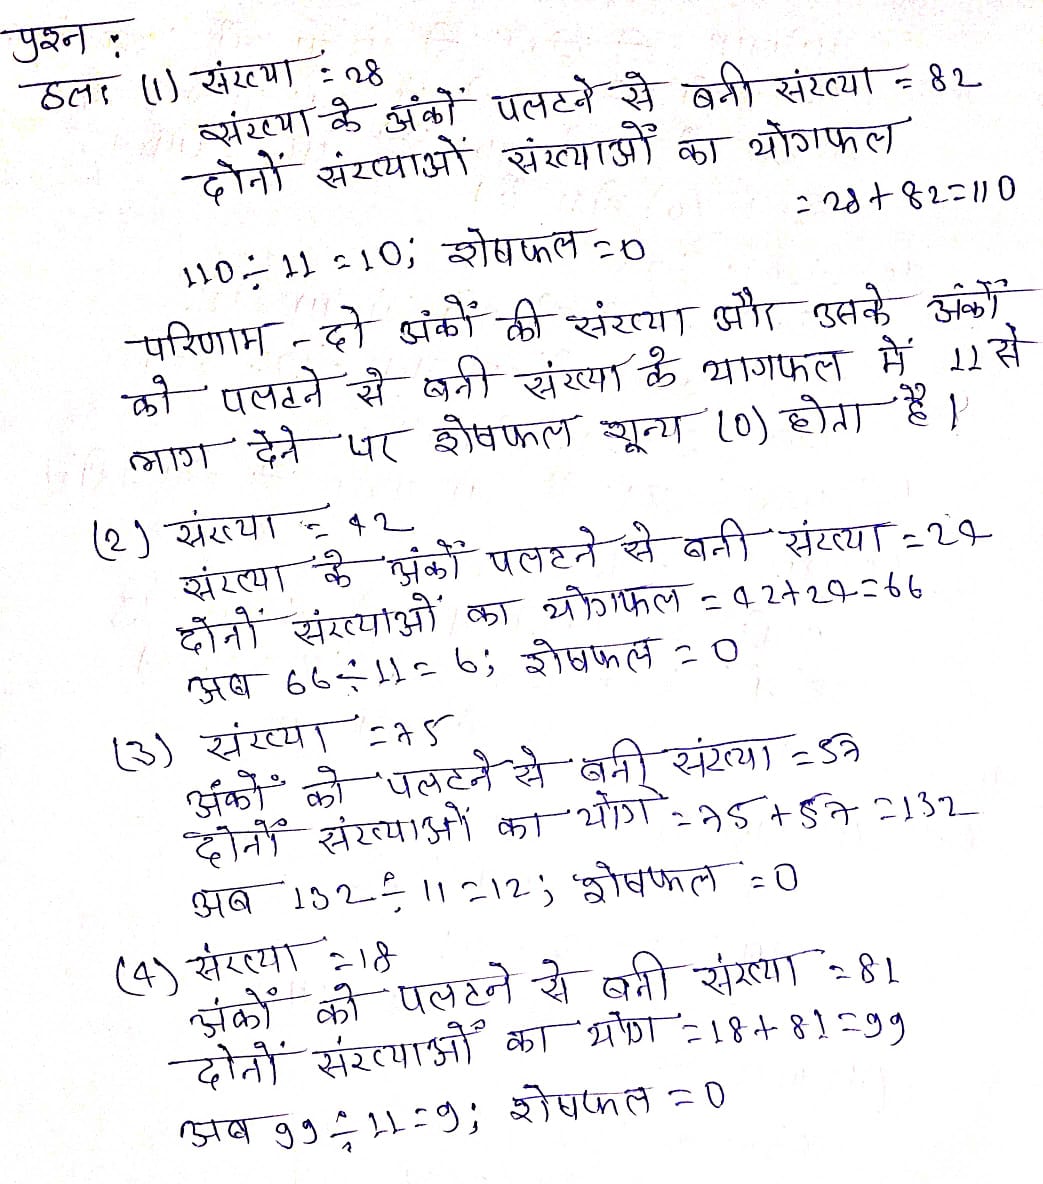 प्रश्न :
हल: (1) संख्या = 28
संख्या के अंकों पलटने से बनी संख्या = 82
दोनों संख्याओं संख्याओं का योगफल
= 28 + 82 = 110
110 ÷ 11 = 10; शेषफल = 0
परिणाम - दो अंकों की संख्या और उसके अंकों
को पलटने से बनी संख्या के यागफल में 11 से
भाग देने पर शेषफल शून्य (0) होता है।
(2) संख्या = 42
संख्या के अंकों पलटने से बनी संख्या = 24
दोनों संख्याओं का योगफल = 42 + 24 = 66
अब 66 ÷ 11 = 6; शेषफल = 0
(3) संख्या = 75
अंकों को पलटने से बनी संख्या = 57
दोनों संख्याओं का योग = 75 + 57 = 132
अब 132 ÷ 11 = 12; शेषफल = 0
(4) संख्या = 18
अंकों को पलटने से बनी संख्या = 81
दोनों संख्याओं का योग = 18 + 81 = 99
अब 99 ÷ 11 = 9; शेषफल = 0